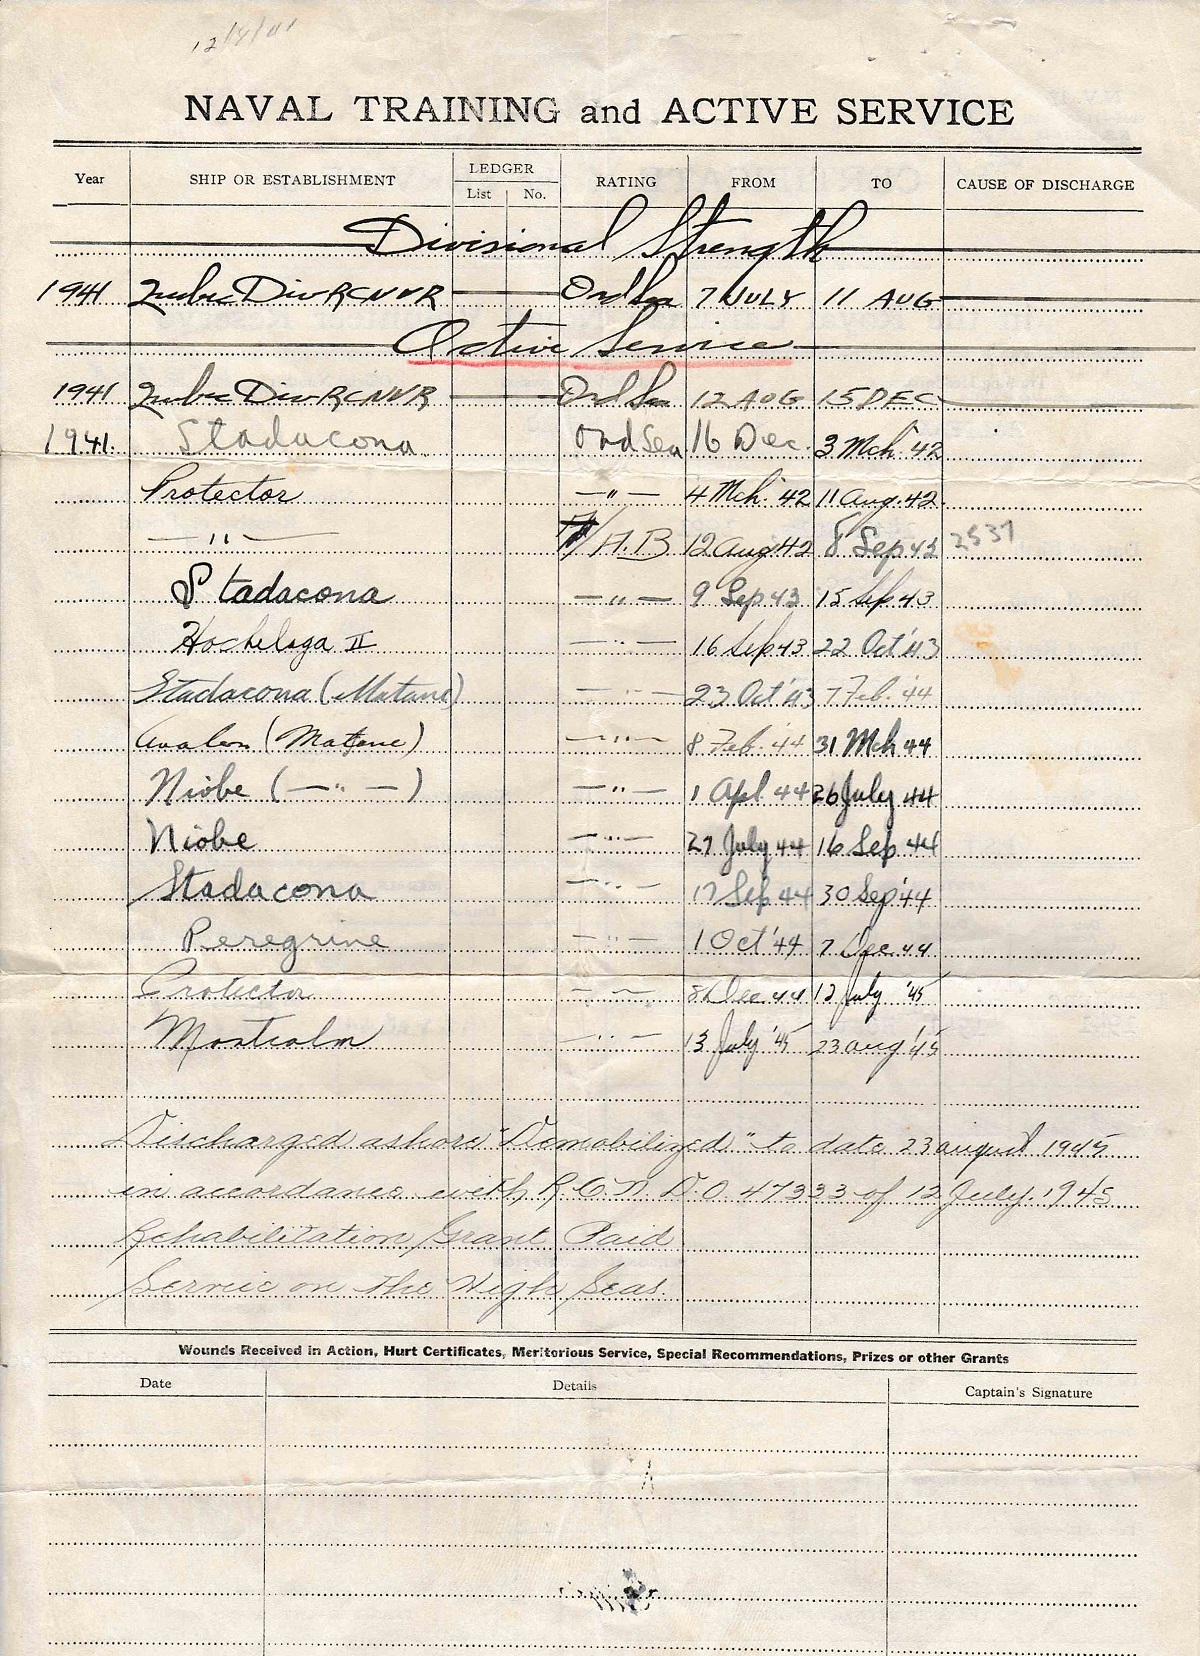 NAVAL TRAINING and ACTIVE SERVICE
Year SHIP OR ESTABLISHMENT LEDGER List No. RATING FROM TO CAUSE OF DISCHARGE
Divisional Strength
1941 Quebec Div RCNVR Ord Sea 7 JULY 11 AUG
Active Service
1941 Quebec Div RCNVR Ord Sea 12 AUG 15 DEC
1941. Stadacona Ord Sea 16 Dec. 3 Mch '42
Protector — " — 4 Mch. '42 11 Aug. 42.
— " — A.B 12 Aug 42 8 Sep 43 2537
Stadacona — " — 9 Sep 43 15 Sep 43
Hochelaga II — " — 16 Sep 43 22 Oct '43
Stadacona (Matane) — " — 23 Oct '43 7 Feb. '44
Avalon (Matane) — " — 8 Feb. '44 31 Mch 44
Niobe (— " —) — " — 1 Apl 44 26 July 44
Niobe — " — 27 July 44 16 Sep 44
Stadacona — " — 17 Sep 44 30 Sep '44
Peregrine — " — 1 Oct '44 7 Dec 44
Protector — " — 8 Dec 44 12 July '45
Montcalm — " — 13 July '45 23 Aug '45
Discharged ashore "Demobilized" to date 23 august 1945
in accordance with R.C.N. D.O. 47333 of 12 July. 1945
Rehabilitation Grant Paid
Service on the High Seas.
Wounds Received in Action, Hurt Certificates, Meritorious Service, Special Recommendations, Prizes or other Grants
Date Details Captain's Signature